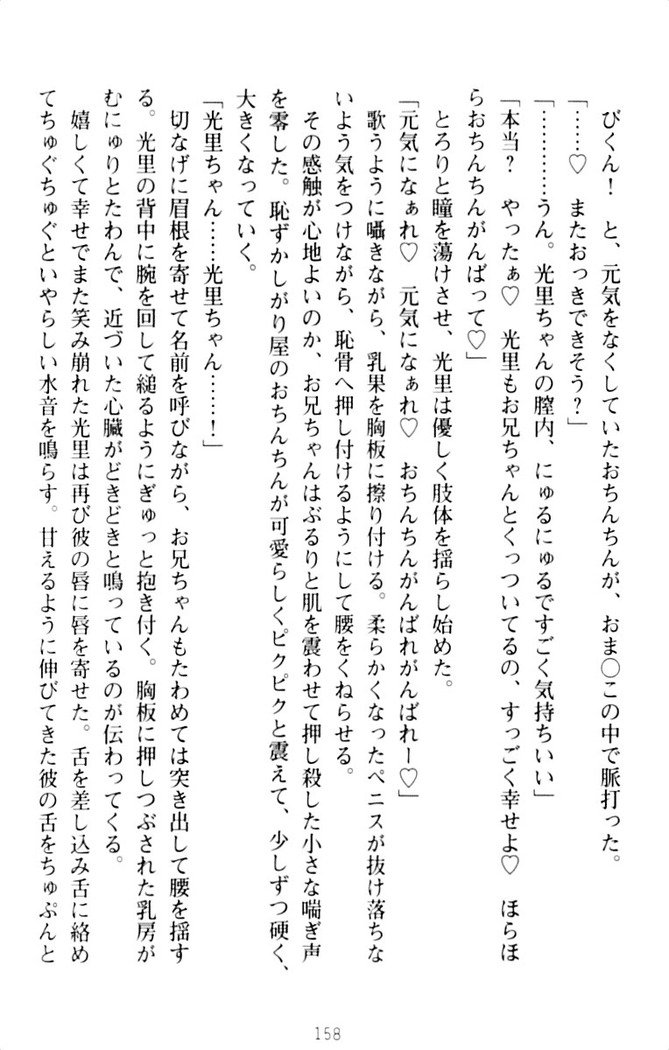 ぴくん！　と、元気をなくしていたおちんちんが、おま〇この中で脈打った。
「……♡　またおっきできそう？」
「…………うん。光里ちゃんの膣内、にゅるにゅるですごく気持ちいい」
「本当？　やったぁ♡　光里もお兄ちゃんとくっついてるの、すっごく幸せよ♡　ほらほ
らおちんちんがんばって♡」
とろりと瞳を蕩けさせ、光里は優しく肢体を揺らし始めた。
「元気になぁれ♡　元気になぁれ♡　おちんちんがんばれがんばれー♡」
歌うように囁きながら、乳果を胸板に擦り付ける。柔らかくなったペニスが抜け落ちな
いよう気をつけながら、恥骨へ押し付けるようにして腰をくねらせる。
その感触が心地よいのか、お兄ちゃんはぶるりと肌を震わせて押し殺した小さな喘ぎ声
を零した。恥ずかしがり屋のおちんちんが可愛らしくピクピクと震えて、少しずつ硬く、
大きくなっていく。
「光里ちゃん……光里ちゃん……！」
切なげに眉根を寄せて名前を呼びながら、お兄ちゃんもたわめては突き出して腰を揺す
る。光里の背中に腕を回して縋るようにぎゅっと抱き付く。胸板に押しつぶされた乳房が
むにゅりとたわんで、近づいた心臓がどきどきと鳴っているのが伝わってくる。
嬉しくて幸せでまた笑み崩れた光里は再び彼の唇に唇を寄せた。舌を差し込み舌に絡め
てちゅぐちゅぐといやらしい水音を鳴らす。甘えるように伸びてきた彼の舌をちゅぷんと
158